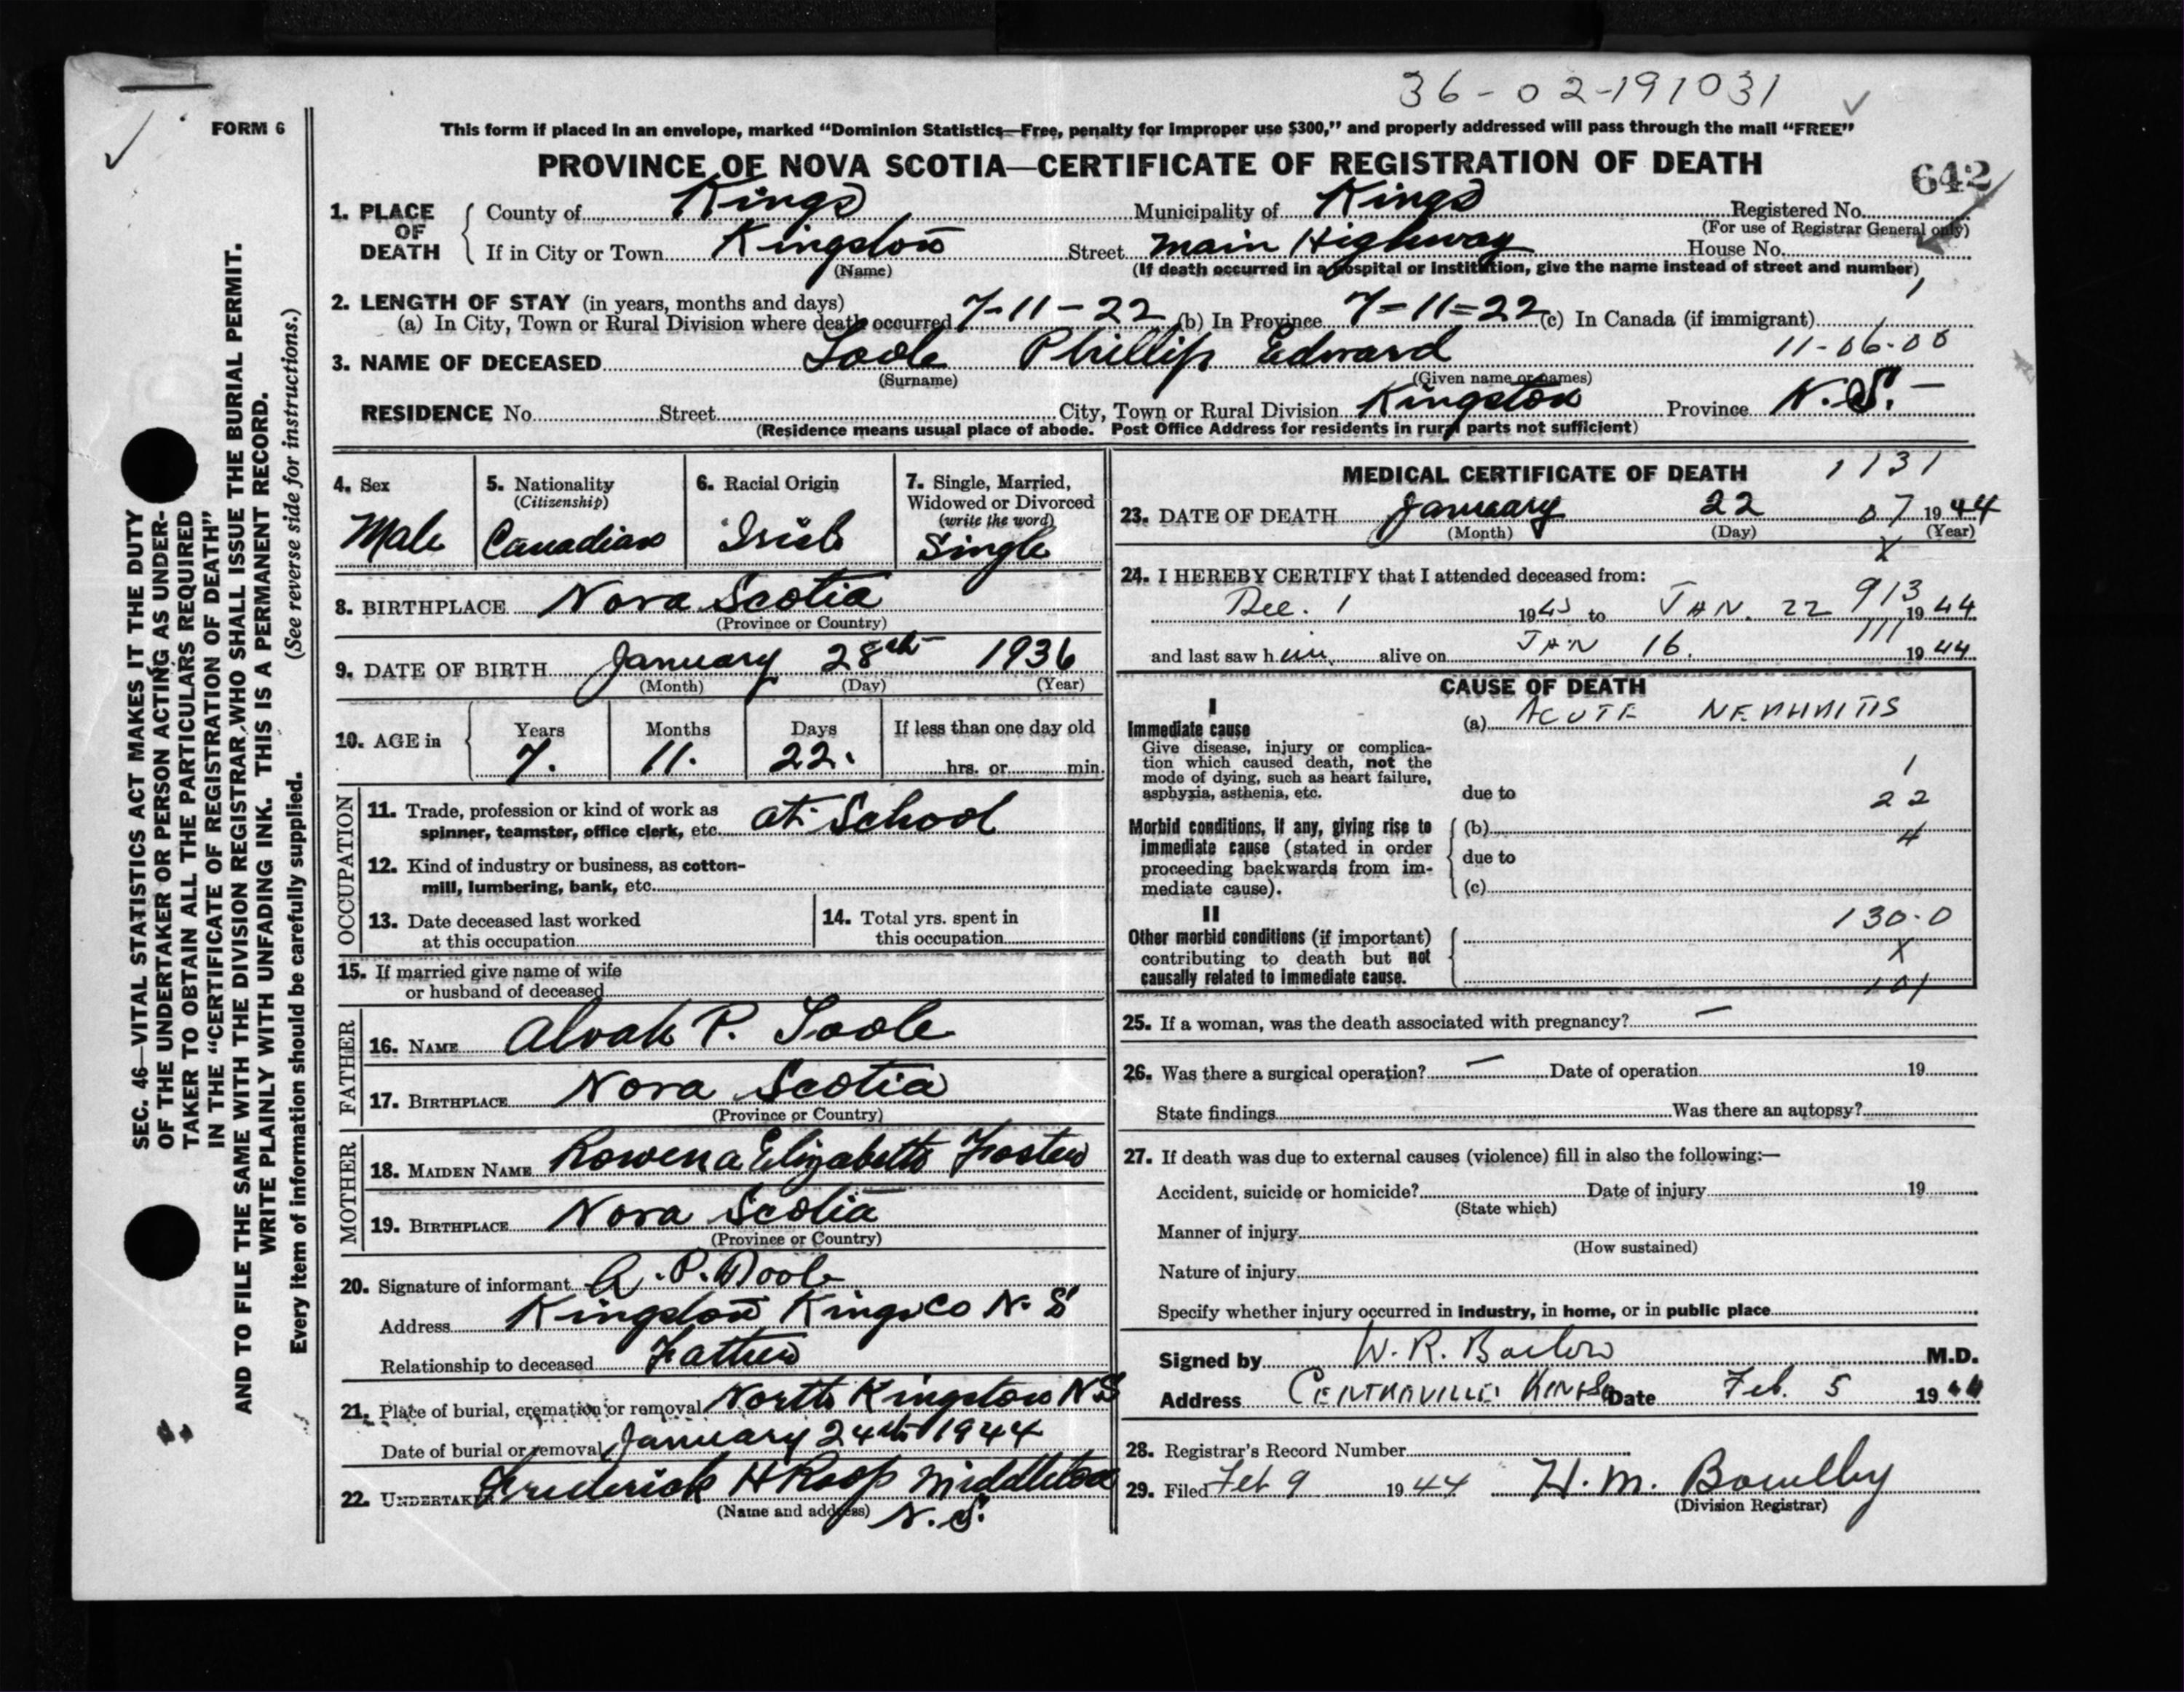 36-02-191031
FORM 6
This form if placed in an envelope, marked “Dominion Statistics—Free, penalty for improper use $300,” and properly addressed will pass through the mail “FREE”
PROVINCE OF NOVA SCOTIA—CERTIFICATE OF REGISTRATION OF DEATH
642
1. PLACE OF DEATH
County of Kings Municipality of Kings Registered No.
(For use of Registrar General only)
If in City or Town Kingston Street Main Highway House No.
(Name) (If death occurred in a hospital or institution, give the name instead of street and number)
2. LENGTH OF STAY (in years, months and days)
(a) In City, Town or Rural Division where death occurred 7-11-22 (b) In Province 7-11-22 (c) In Canada (if immigrant)
3. NAME OF DECEASED Toole Phillip Edward 11-06-00
(Surname) (Given name or names)
RESIDENCE No. Street City, Town or Rural Division Kingston Province N.S. -
(Residence means usual place of abode. Post Office Address for residents in rural parts not sufficient)
4. Sex
Male
5. Nationality
(Citizenship)
Canadian
6. Racial Origin
Irish
7. Single, Married,
Widowed or Divorced
(write the word)
Single
8. BIRTHPLACE Nova Scotia
(Province or Country)
9. DATE OF BIRTH January 28th 1936
(Month) (Day) (Year)
10. AGE in
Years Months Days If less than one day old
7. 11. 22. hrs. or min.
OCCUPATION
11. Trade, profession or kind of work as
spinner, teamster, office clerk, etc. at School
12. Kind of industry or business, as cotton-
mill, lumbering, bank, etc.
13. Date deceased last worked
at this occupation
14. Total yrs. spent in
this occupation
15. If married give name of wife
or husband of deceased
FATHER
16. NAME Alvah P. Toole
17. BIRTHPLACE Nova Scotia
(Province or Country)
MOTHER
18. MAIDEN NAME Rowena Elizabeth Foster
19. BIRTHPLACE Nova Scotia
(Province or Country)
20. Signature of informant A. P. Toole
Address Kingston Kings Co N. S
Relationship to deceased Father
21. Place of burial, cremation or removal North Kingston NS
Date of burial or removal January 24th 1944
22. UNDERTAKER Frederick H Roop Middleton
(Name and address) N.S.
MEDICAL CERTIFICATE OF DEATH 1131
23. DATE OF DEATH January 22 07 1944
(Month) (Day) (Year)
X
24. I HEREBY CERTIFY that I attended deceased from:
Dec. 1 1943 to JAN. 22 1944
913
111
and last saw him alive on JAN 16. 1944
CAUSE OF DEATH
I
Immediate cause
Give disease, injury or complica-
tion which caused death, not the
mode of dying, such as heart failure,
asphyxia, asthenia, etc.
(a) ACUTE NEPHRITIS
1
due to
22
Morbid conditions, if any, giving rise to
immediate cause (stated in order
proceeding backwards from im-
mediate cause).
(b)
4
due to
(c)
II
Other morbid conditions (if important)
contributing to death but not
causally related to immediate cause.
130.0
X
101
25. If a woman, was the death associated with pregnancy? —
26. Was there a surgical operation? — Date of operation 19
State findings Was there an autopsy?
27. If death was due to external causes (violence) fill in also the following:—
Accident, suicide or homicide? Date of injury 19
(State which)
Manner of injury
(How sustained)
Nature of injury
Specify whether injury occurred in industry, in home, or in public place
Signed by W. R. M.D.
Address CENTREVILLE, KINGS Co Date Feb. 5 1944
28. Registrar's Record Number
29. Filed Feb 9 1944 H. M. Bowlby
(Division Registrar)
SEC. 46—VITAL STATISTICS ACT MAKES IT THE DUTY
OF THE UNDERTAKER OR PERSON ACTING AS UNDER-
TAKER TO OBTAIN ALL THE PARTICULARS REQUIRED
IN THE “CERTIFICATE OF REGISTRATION OF DEATH”
AND TO FILE THE SAME WITH THE DIVISION REGISTRAR, WHO SHALL ISSUE THE BURIAL PERMIT.
WRITE PLAINLY WITH UNFADING INK. THIS IS A PERMANENT RECORD.
Every item of information should be carefully supplied. (See reverse side for instructions.)